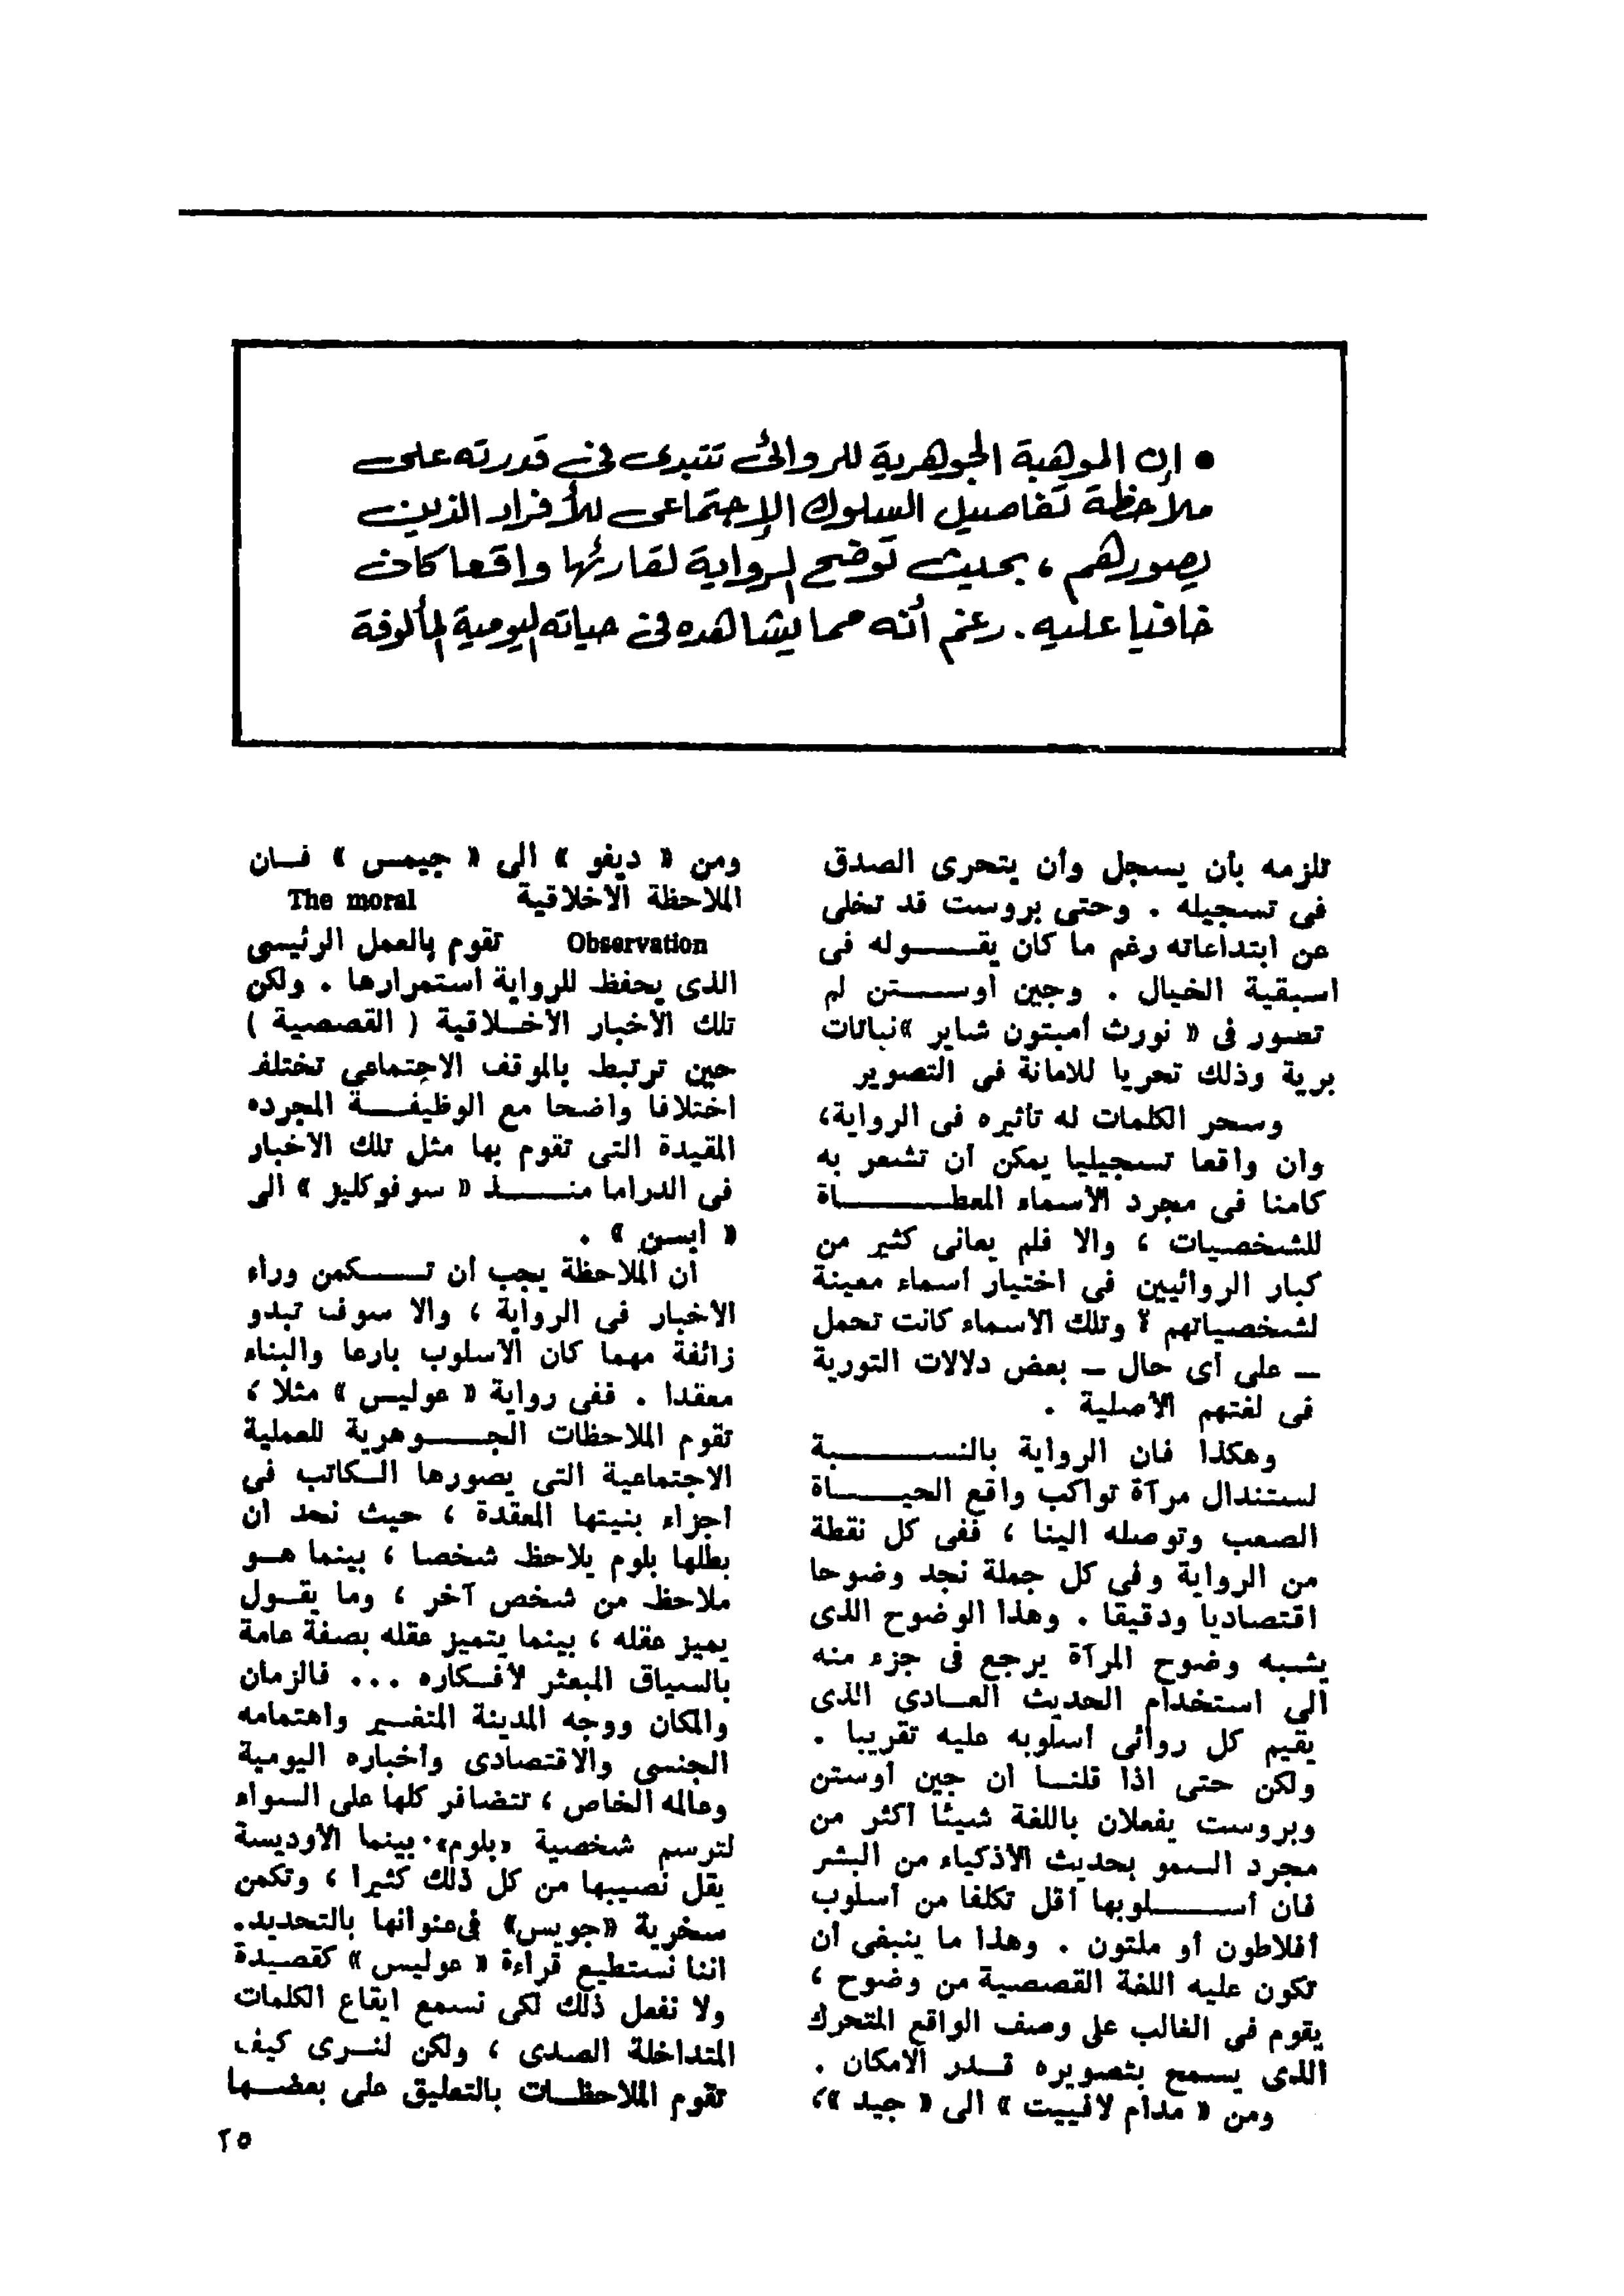 • إن الموهبة الجوهرية للروائى تتبدى فى قدرته على
ملاحظة تفاصيل السلوك الإجتماعى للأفراد الذين
يصورهم ، بحيث توضح الرواية لقارئها واقعا كان
خافيا عليه . رغم أنه مما يشاهده فى حياته اليومية المألوفة
تلزمه بأن يسجل وأن يتحرى الصدق
فى تسجيله . وحتى بروست قد تخلى
عن ابتداعاته رغم ما كان يقـــوله فى
اسبقية الخيال . وجين أوســـتن لم
تصور فى « نورث أمبتون شاير »نباتات
برية وذلك تحريا للامانة فى التصوير
وسحر الكلمات له تأثيره فى الرواية،
وان واقعا تسجيليا يمكن أن تشعر به
كامنا فى مجرد الأسماء المعطـــــاة
للشخصيات ، والا فلم يعانى كثير من
كبار الروائيين فى اختيار أسماء معينة
لشخصياتهم ؟ وتلك الاسماء كانت تحمل
– على أى حال – بعض دلالات التورية
فى لغتهم الأصلية .
وهكذا فان الرواية بالنســـــبة
لستندال مرآة تواكب واقع الحيـــاة
الصعب وتوصله الينا ، ففى كل نقطة
من الرواية وفى كل جملة نجد وضوحا
اقتصاديا ودقيقا . وهذا الوضوح الذى
يشبه وضوح المرآة يرجع فى جزء منه
الى استخدام الحديث العـادى الذى
يقيم كل روائى أسلوبه عليه تقريبا .
ولكن حتى اذا قلنـا أن جين أوستن
وبروست يفعلان باللغة شيئا أكثر من
مجرد السمو بحديث الأذكياء من البشر
فان أســـــلوبها أقل تكلفا من أسلوب
أفلاطون أو ملتون . وهذا ما ينبغى أن
تكون عليه اللغة القصصية من وضوح ،
يقوم فى الغالب على وصف الواقع المتحرك
الذى يسمح بتصويره قـدر الامكان .
ومن « مدام لافييت » الى « جيد »،
ومن « ديفو » الى « جيمس » فـان
الملاحظة الاخلاقية The moral
Observation تقوم بالعمل الرئيسى
الذى يحفظ للرواية استمرارها . ولكن
تلك الأخبار الأخـلاقية ( القصصية )
حين ترتبط بالموقف الاجتماعى تختلف
اختلافا واضحا مع الوظيفـــة المجرده
المقيدة التى تقوم بها مثل تلك الاخبار
فى الدراما منــــذ « سوفوكليز » الى
« ابسن » .
ان الملاحظة يجب أن تـــكمن وراء
الاخبار فى الرواية ، والا سوف تبدو
زائفة مهما كان الأسلوب بارعا والبناء
معقدا . ففى رواية « عوليس » مثلا ،
تقوم الملاحظات الجـــوهرية للعملية
الاجتماعية التى يصورها الـكاتب فى
اجزاء بنيتها المعقدة ، حيث نجد ان
بطلها بلوم يلاحظ شخصا ، بينما هـو
ملاحظ من شخص آخر ، وما يقـول
يميز عقله ، بينما يتميز عقله بصفة عامة
بالسياق المبعثر لأفـكاره ... فالزمان
والمكان ووجه المدينة المتغسير واهتمامه
الجنسى والاقتصادى وأخباره اليومية
وعالمه الخاص ، تتضافر كلها على السواء
لترسم شخصية «بلوم»· بينما الأوديسة
يقل نصيبها من كل ذلك كثيرا ، وتكمن
سخرية «جويس» فى عنوانها بالتحديد.
اننا نستطيع قراءة « عوليس » كقصيدة
ولا نفعل ذلك لكى نسمع ايقاع الكلمات
المتداخلة الصدى ، ولكن لنـرى كيف
تقوم الملاحظـات بالتعليق على بعضـها
٢٥